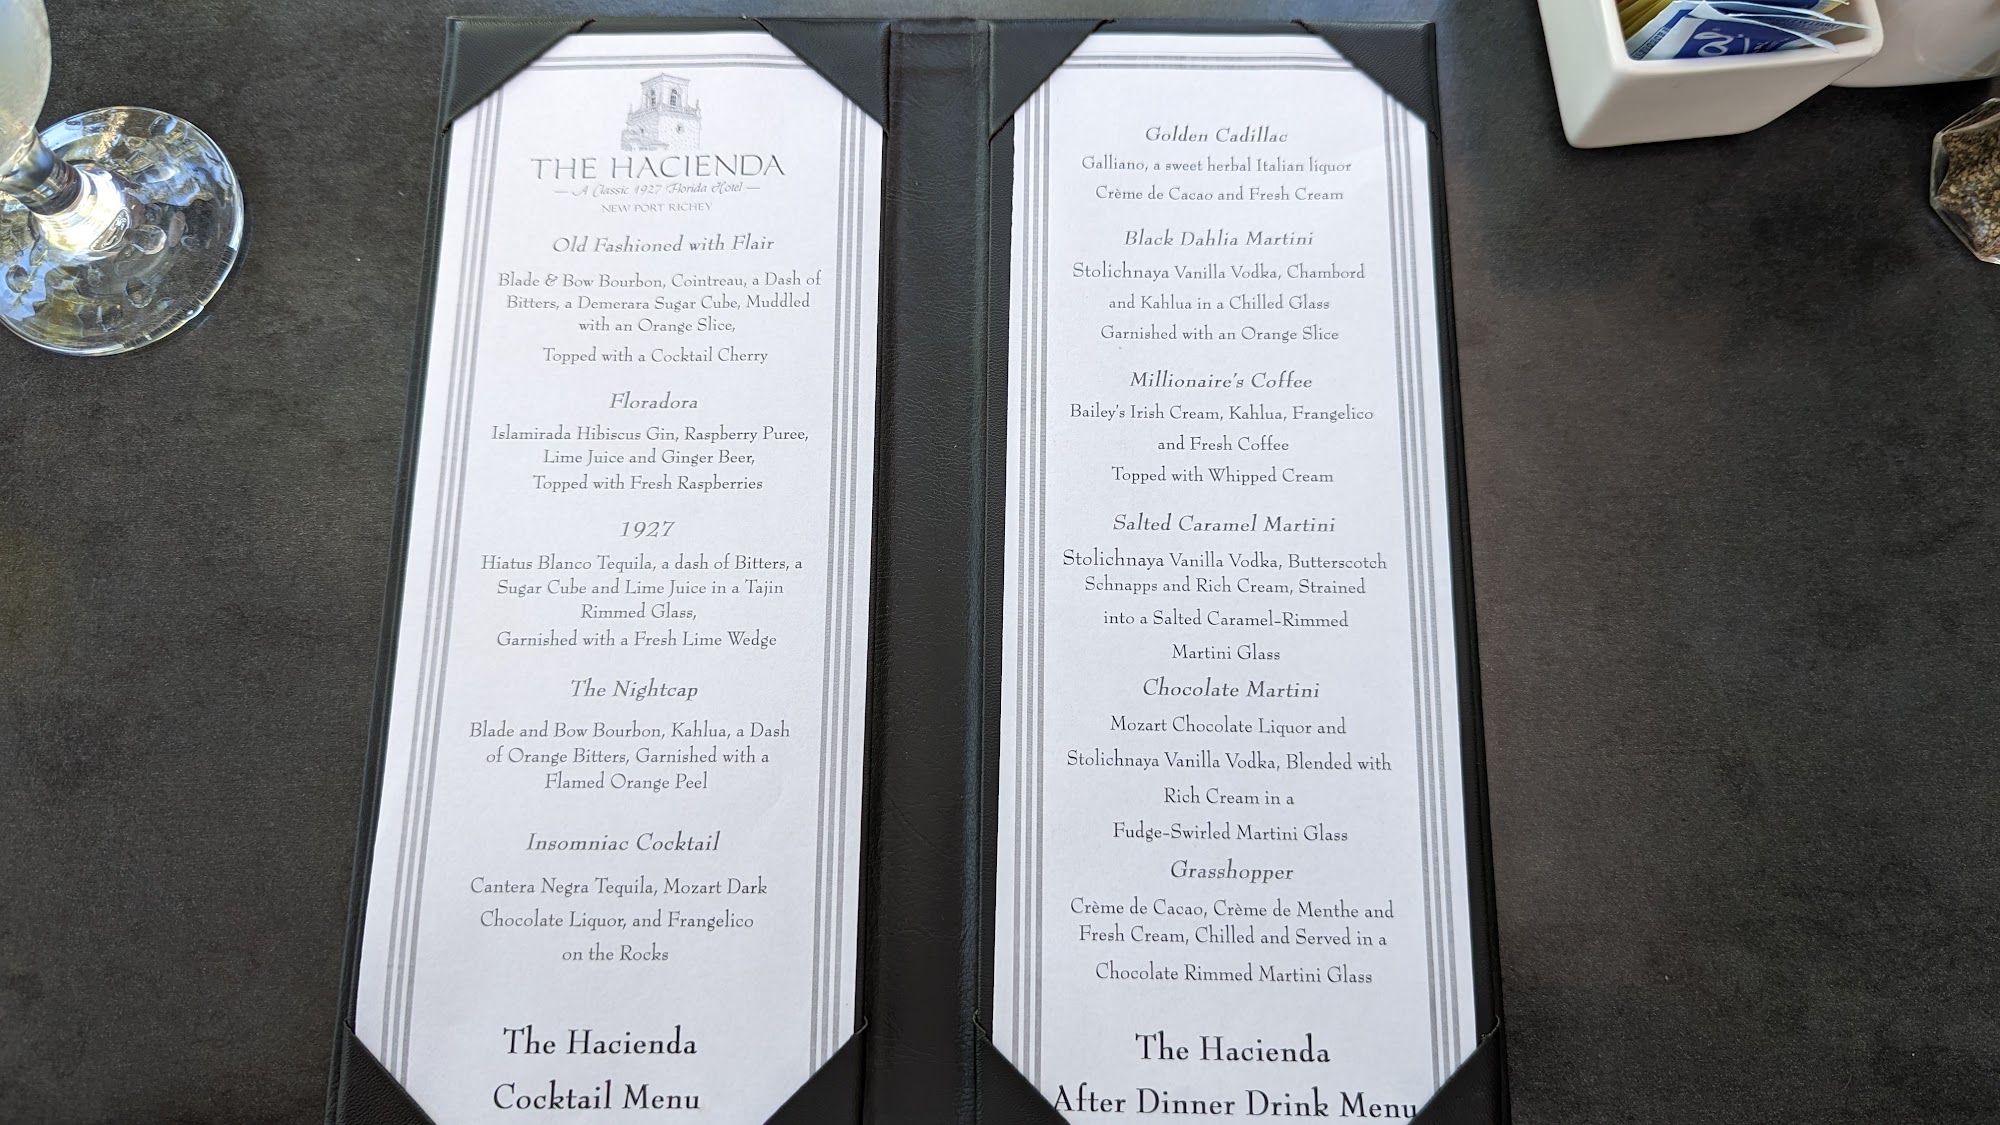 THE HACIENDA
— A Classic 1927 Florida Hotel —
NEW PORT RICHEY
Old Fashioned with Flair
Blade & Bow Bourbon, Cointreau, a Dash of
Bitters, a Demerara Sugar Cube, Muddled
with an Orange Slice,
Topped with a Cocktail Cherry
Floradora
Islamirada Hibiscus Gin, Raspberry Puree,
Lime Juice and Ginger Beer,
Topped with Fresh Raspberries
1927
Hiatus Blanco Tequila, a dash of Bitters, a
Sugar Cube and Lime Juice in a Tajin
Rimmed Glass,
Garnished with a Fresh Lime Wedge
The Nightcap
Blade and Bow Bourbon, Kahlua, a Dash
of Orange Bitters, Garnished with a
Flamed Orange Peel
Insomniac Cocktail
Cantera Negra Tequila, Mozart Dark
Chocolate Liquor, and Frangelico
on the Rocks
The Hacienda
Cocktail Menu
Golden Cadillac
Galliano, a sweet herbal Italian liquor
Crème de Cacao and Fresh Cream
Black Dahlia Martini
Stolichnaya Vanilla Vodka, Chambord
and Kahlua in a Chilled Glass
Garnished with an Orange Slice
Millionaire's Coffee
Bailey's Irish Cream, Kahlua, Frangelico
and Fresh Coffee
Topped with Whipped Cream
Salted Caramel Martini
Stolichnaya Vanilla Vodka, Butterscotch
Schnapps and Rich Cream, Strained
into a Salted Caramel-Rimmed
Martini Glass
Chocolate Martini
Mozart Chocolate Liquor and
Stolichnaya Vanilla Vodka, Blended with
Rich Cream in a
Fudge-Swirled Martini Glass
Grasshopper
Crème de Cacao, Crème de Menthe and
Fresh Cream, Chilled and Served in a
Chocolate Rimmed Martini Glass
The Hacienda
After Dinner Drink Menu